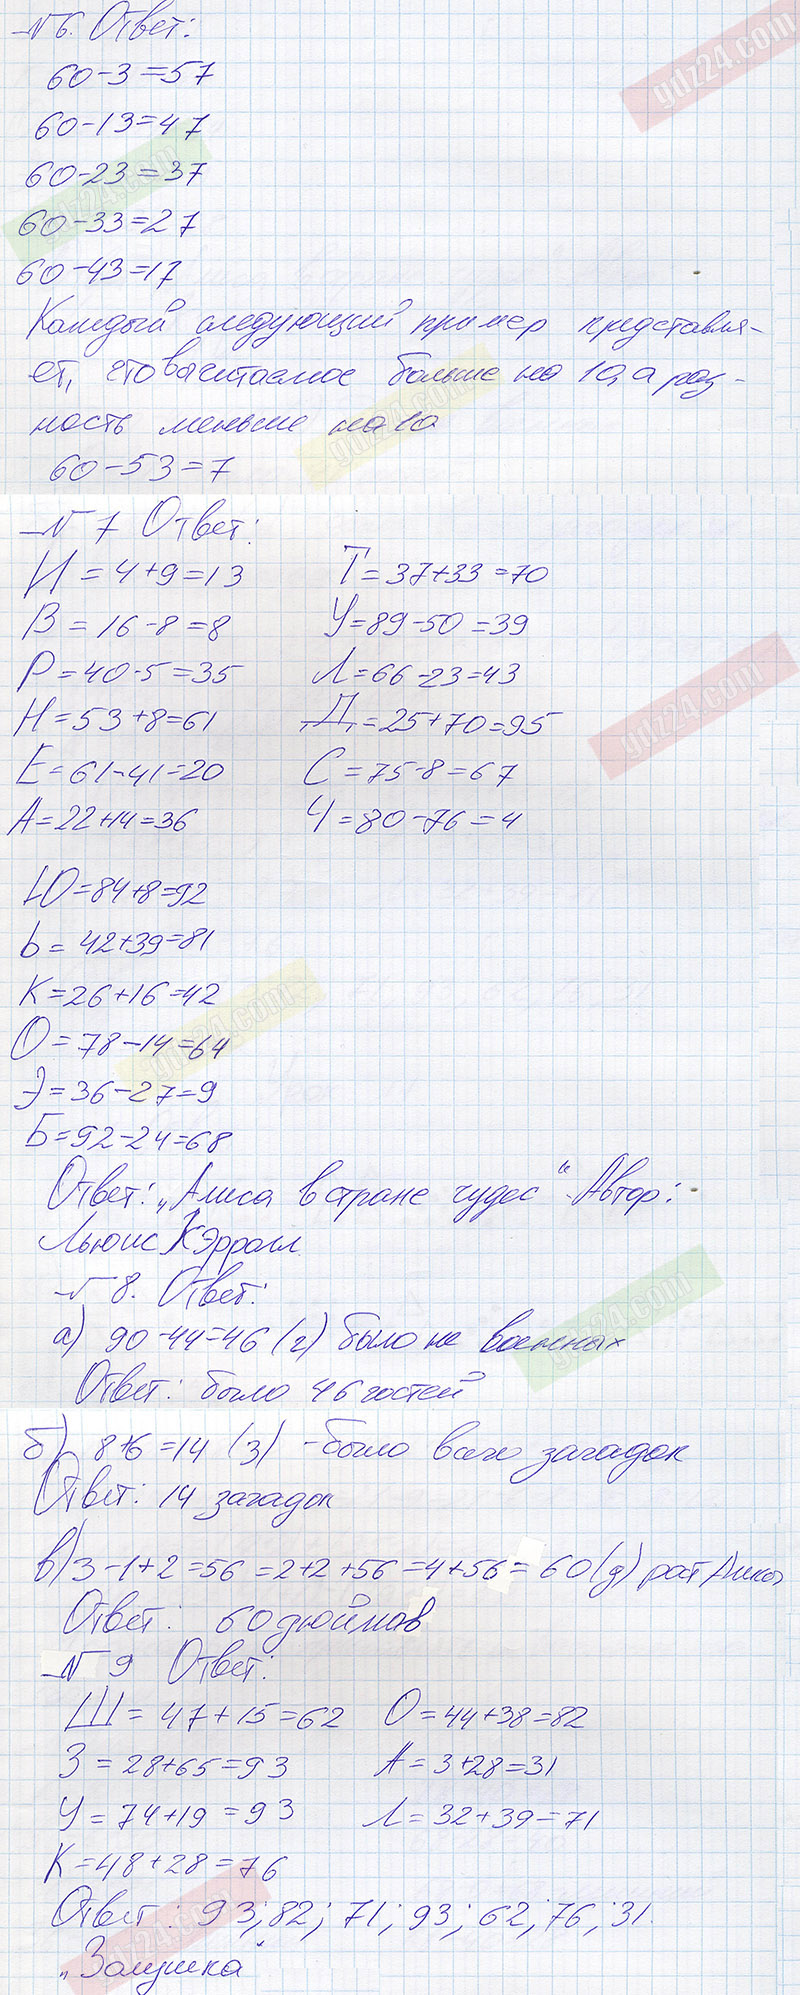 №6. Ответ:
60-3=57
60-13=47
60-23=37
60-33=27
60-43=17
Каждый следующий пример представля-
ет, что вычитаемое больше на 10, а раз-
ность меньше на 10
60-53=7
№7 Ответ:
И=4+9=13 Т=37+33=70
В=16-8=8 У=89-50=39
Р=40-5=35 Л=66-23=43
Н=53+8=61 Д=25+70=95
Е=61-41=20 С=75-8=67
А=22+14=36 Ч=80-76=4
Ю=84+8=92
Ь=42+39=81
К=26+16=42
О=78-14=64
Э=36-27=9
Б=92-24=68
Ответ: „Алиса в стране чудес“. Автор:
Льюис Кэрролл
№8. Ответ:
а) 90-44=46 (г) было не важных
Ответ: было 46 гостей
б) 8+6=14 (з) - было всего загадок
Ответ: 14 загадок
в) 3-1+2=56=2+2+56=4+56=60(д) рост Алисы
Ответ: 60 дюймов
№9 Ответ:
Ш=47+15=62 О=44+38=82
З=28+65=93 А=3+28=31
У=74+19=93 Л=32+39=71
К=48+28=76
Ответ: 93; 82; 71; 93; 62; 76; 31.
„Золушка“
gdz24.com
gdz24.com
gdz24.com
gdz24.com
gdz24.com
gdz24.com
gdz24.com